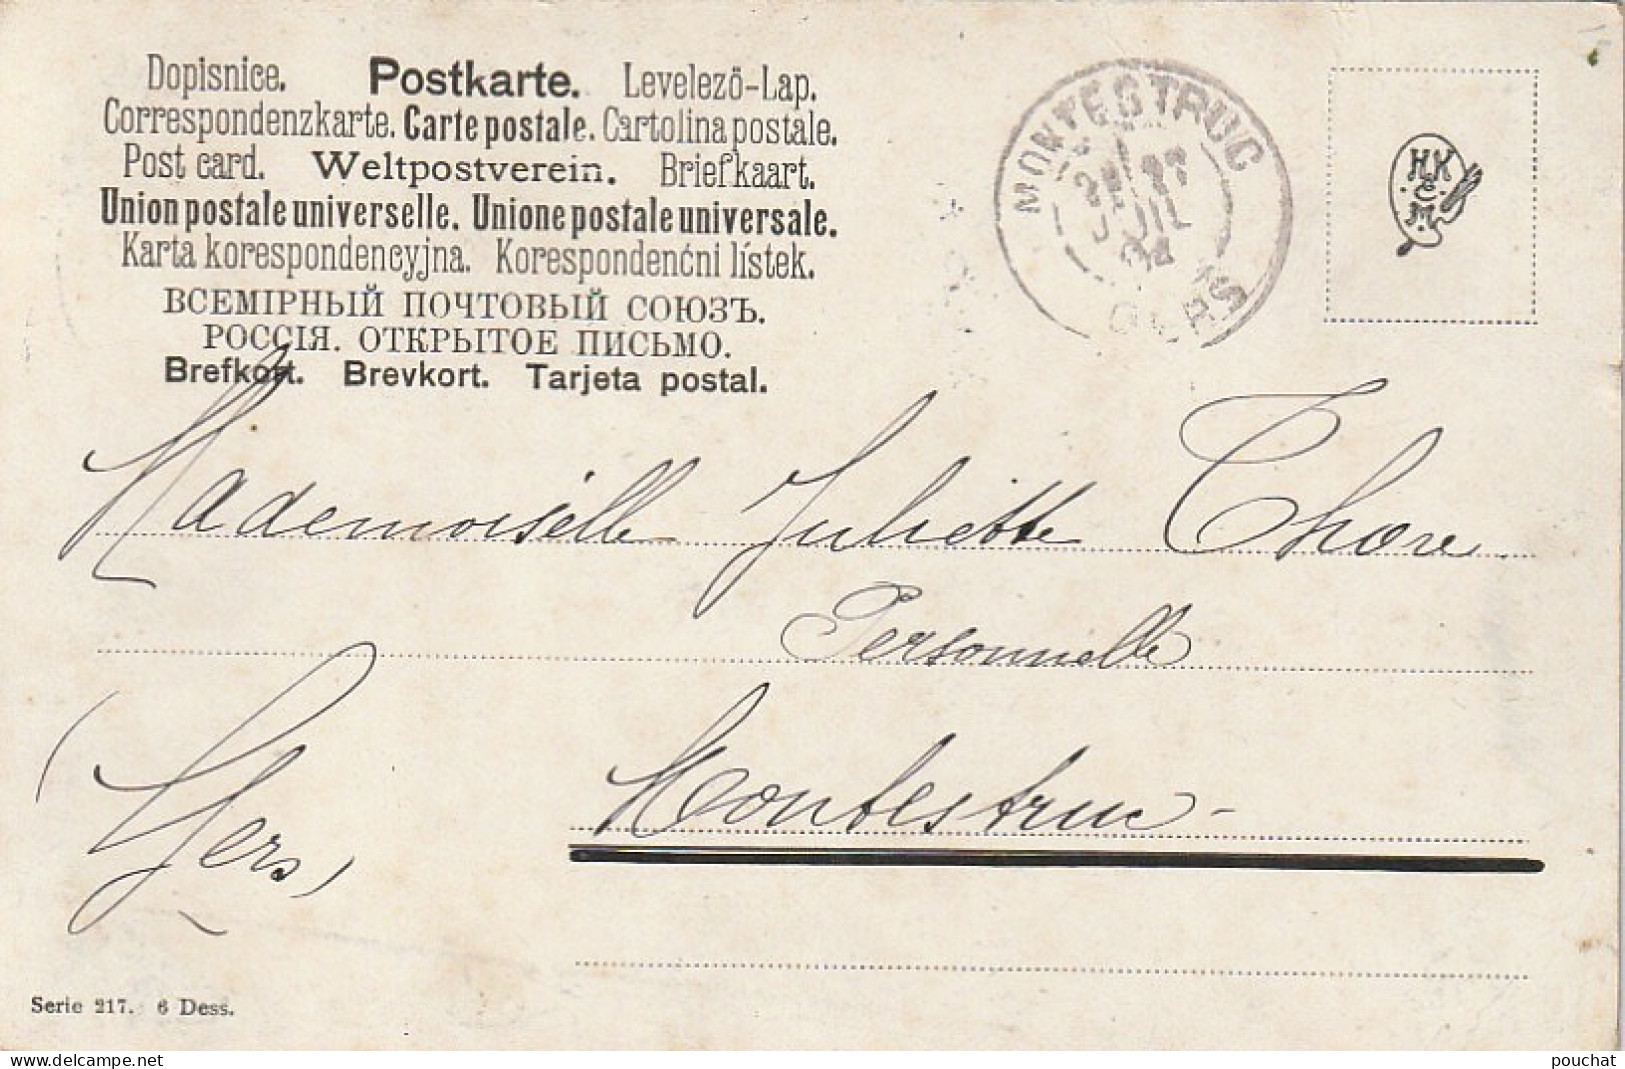 Dopisnice. Postkarte. Levelező-Lap.
Correspondenzkarte. Carte postale. Cartolina postale.
Post card. Weltpostverein. Briefkaart.
Union postale universelle. Unione postale universale.
Karta korespondencyjna. Korespondenční lístek.
ВСЕМІРНЫЙ ПОЧТОВЫЙ СОЮЗЪ.
РОССІЯ. ОТКРЫТОЕ ПИСЬМО.
Brefkort. Brevkort. Tarjeta postal.
MONTESTRUC
JUIL
04
GERS
HK
&
M.
Mademoiselle Juliette Thore
Personnelle
Montestruc -
(Gers)
Serie 217. 6 Dess.
www.delcampe.net
pouchat